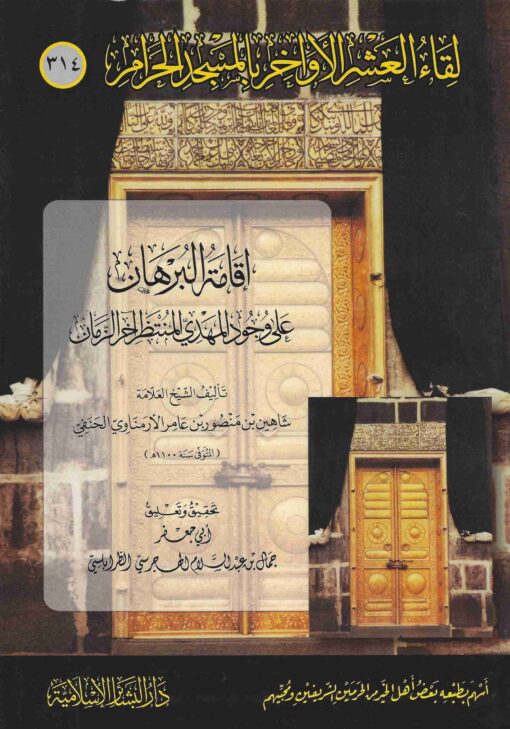 لِقَاءُ العَشْرِ الأَوَاخِرِ بِالمَسْجِدِ الحَرَامِ
٣١٤
إِقَامَةُ البُرْهَان
عَلَى وُجُودِ المَهْدِيِّ المُنْتَظَرِ آخِرَ الزَّمَان
تَأليفُ الشَّيْخِ العَلَّامَة
شَاهِين بْن مَنْصُور بْن عَامِر الأَرْمَنَاوِيّ الحَنَفِيّ
( المُتَوَفَّى سَنَة ١١٠٠هـ )
تَحْقِيقُ وَتَعْلِيقُ
أَبِي جَعْفَر
جَمَال بْن عَبْدِ السَّلَام الهَجْرَسِيّ الطَّرَابُلسِيّ
أَسْهَمَ بِطَبْعِهِ بَعْضُ أَهْلِ الخَيْرِ مِنَ الحَرَمَيْنِ الشَّرِيفَيْنِ وَمُحِبِّيهِم
دَارُ البَشَائِرِ الإِسْلَامِيَّة